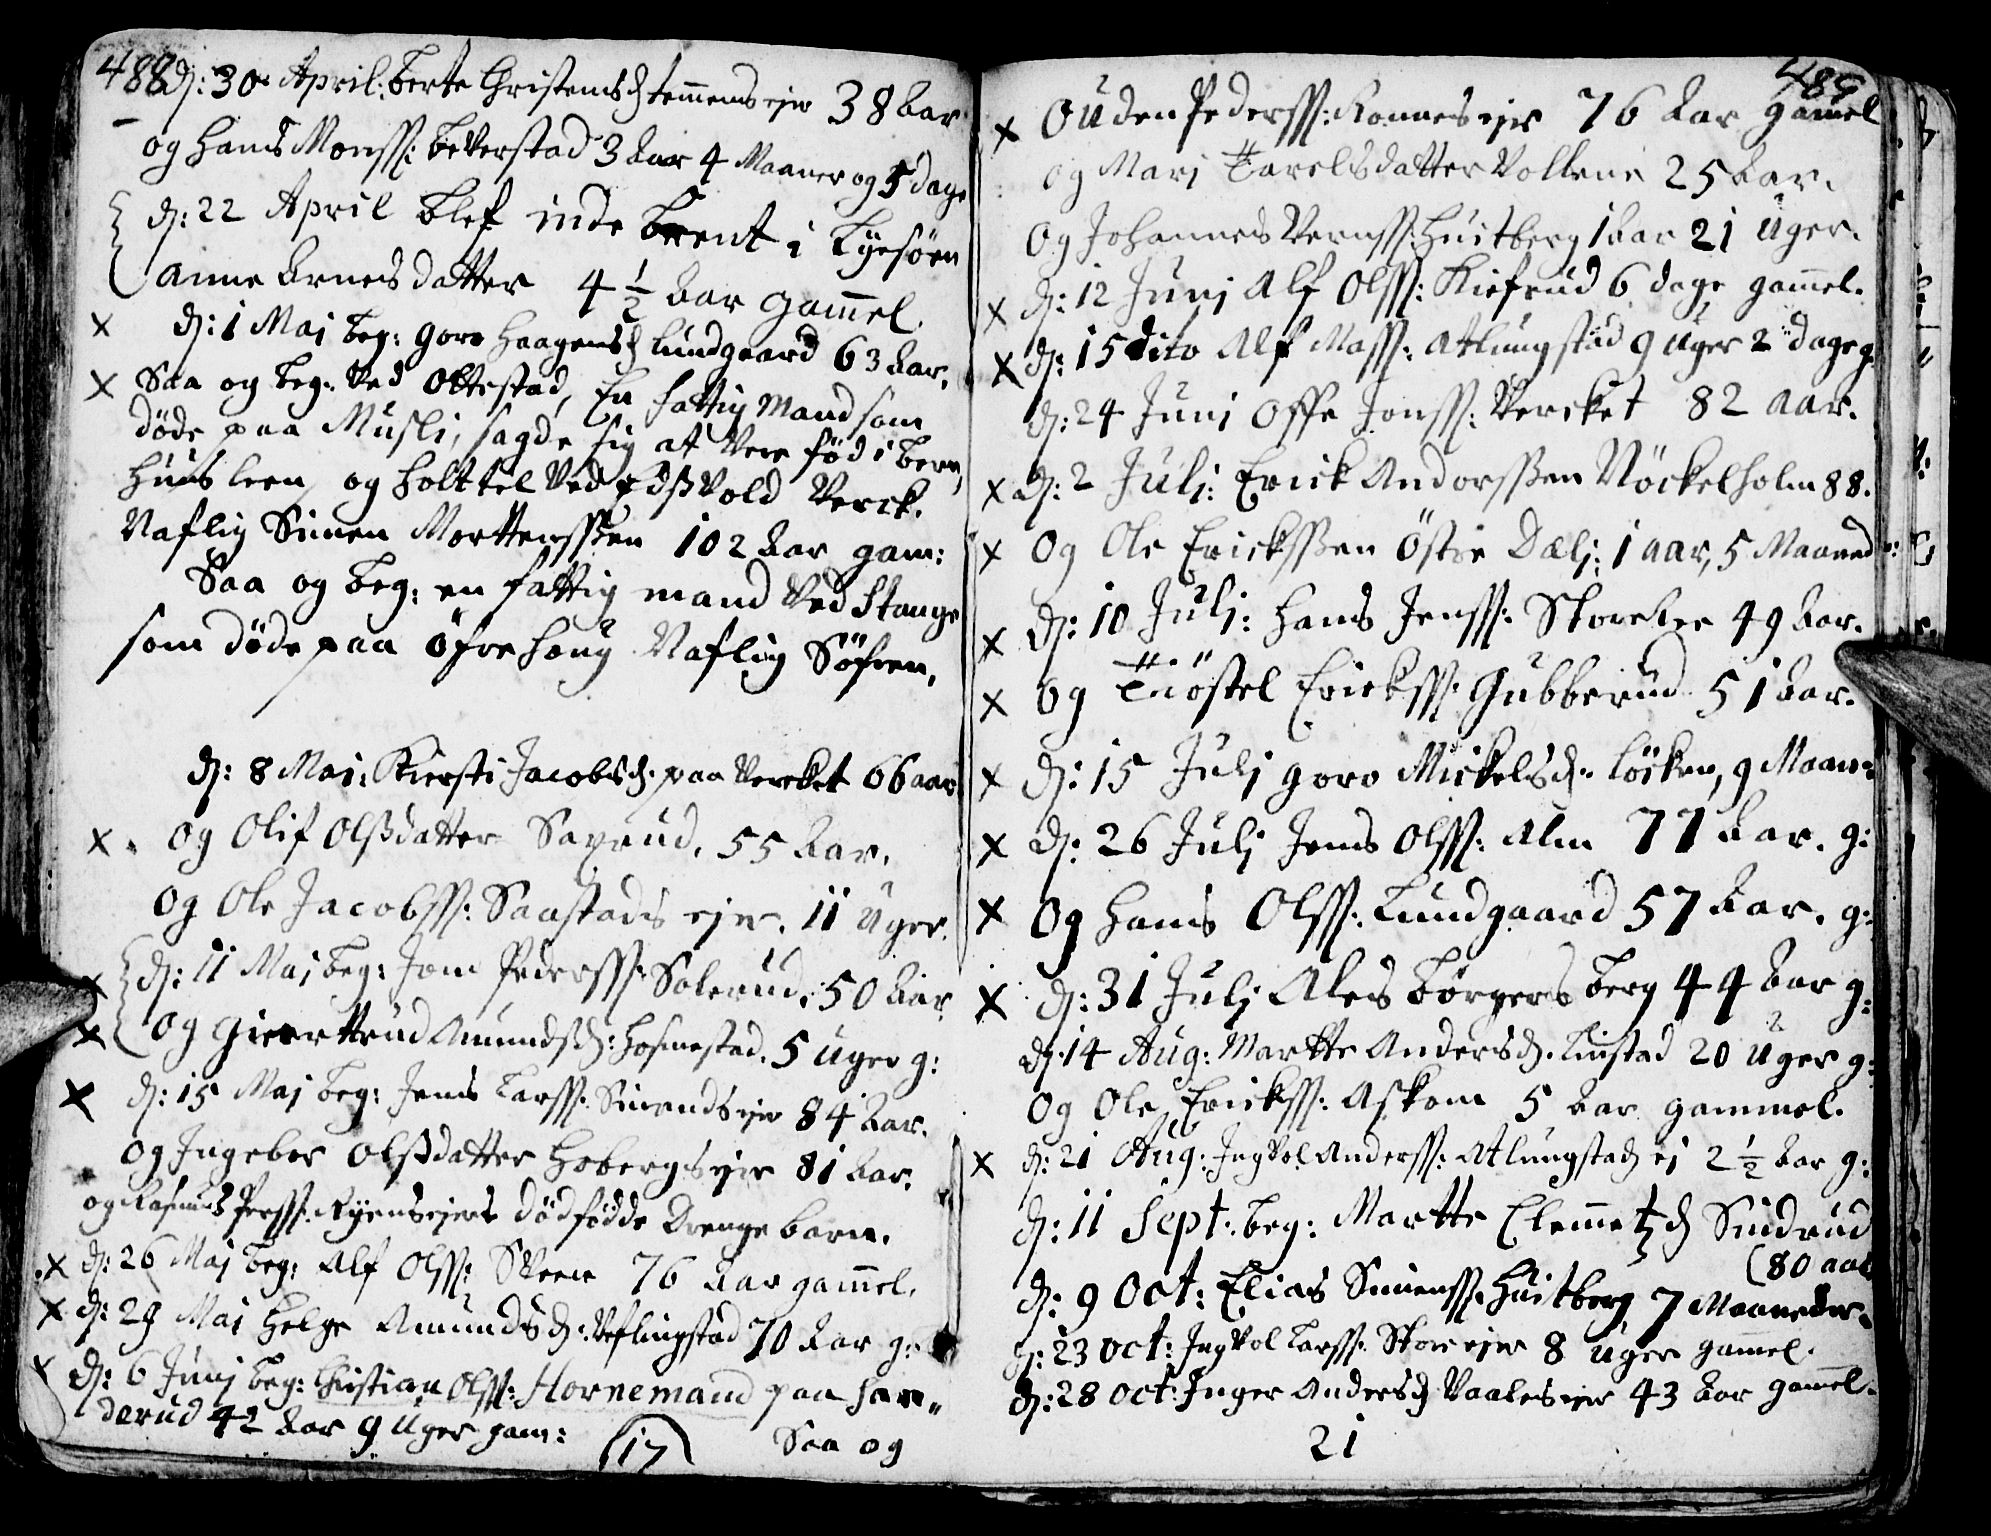 488
d: 30 April: Berte Christensd Temmens ejer 38 Aar
og Hans Monss: Beverstad 3 Aar 4 Maaner og 5 dage
d: 22 April blef inde brent i Lyesøen
Anne Arnesdatter 4 1/2 Aar gammel.
d: 1 Maj beg: Goro Haagensd Lundgaard 63 Aar.
Saa og beg: ved Ottestad, En fattig Mand som
døde paa Musli, sagde sig at vere fød i
huus leen og holt til ved Verck.
Naflig Simen Mortenssen 102 Aar gam:
Saa og beg: en fattig mand ved Stange
som døde paa øfre houg Naflig Søfren,
d: 8 Maj: Kiersti Jacobsd. paa Vercket 66 aar
og Olif Olsdatter Saxrud, 55 Aar.
og Ole Jacobss: Saastads ejer. 11 Uger.
d: 11 Maj beg: Jon Pederss: Solerud, 50 Aar
og Giertrud Amundsd: Hosmestad. 5 Uger g:
d: 15 Maj beg: Jens Larss. ejer 84 Aar.
og Ingebor Olsdatter Hobergs ejer 81 Aar.
og Rasmus Perss. Ryensejers dødfødde Drenge barn.
d: 26 Maj beg: Alf Olss: Skeee 76 Aar gammel.
d: 29 Maj Helge Amundsd: Veflingstad 70 Aar g:
d: 6 Junj beg: Christian Olss: Hornemand paa San-
derud 42 Aar 9 Uger gam:
17
Saa og
489
Ouden Pederss: Ronnes ejer 76 Aar gamel
og Mari Tarelsdatter Vollene 25 Aar.
og Johannes Hvitberg 1 Aar 21 Uger.
d: 12 Junj Alf Olss: Kiefrud 6 dage gammel.
d: 15 dito Alf Mass: Atlungstad 9 Uger 2 dage g.
d: 24 Junj Offe Jonss: Vercket 82 aar.
d: 2 Julj: Erick Andorssen Nøckelholm 88.
og Ole Erickssen Østre Dælj: 1 aar, 5 Maaned
d: 10 Julj: Hans Jenss: Storelee 49 Aar.
og Tiøstel Erickss: Gubberud 51 Aar.
d: 15 Julj Goro Mickelsd. Løcken, 9 Maan:
d: 26 Julj Jens Olss: Alm 77 Aar. g:
og Hans Olss: Lundgaard 57 Aar. g:
d: 31 Julj Ales Børgers berg 44 Aar g:
d: 14 Aug: Martte Andersd. Linstad 20 Uger g:
og Ole Erickss: Askom 5 Aar gammel.
d: 21 Aug: Ingvol Anderss: Atlungstad ej 2 1/2 Aar g:
d: 11 Sept. beg: Martte Clemmetzd Sindrud
(80 aar
d: 9 Oct: Elias Simenss: Hvitberg 7 Maaneder.
d: 23 oct: Ingvol Larss. Store ejer 8 Uger gammel.
d: 28 oct: Inger Andersd Vaales ejer 43 Aar gammel.
21